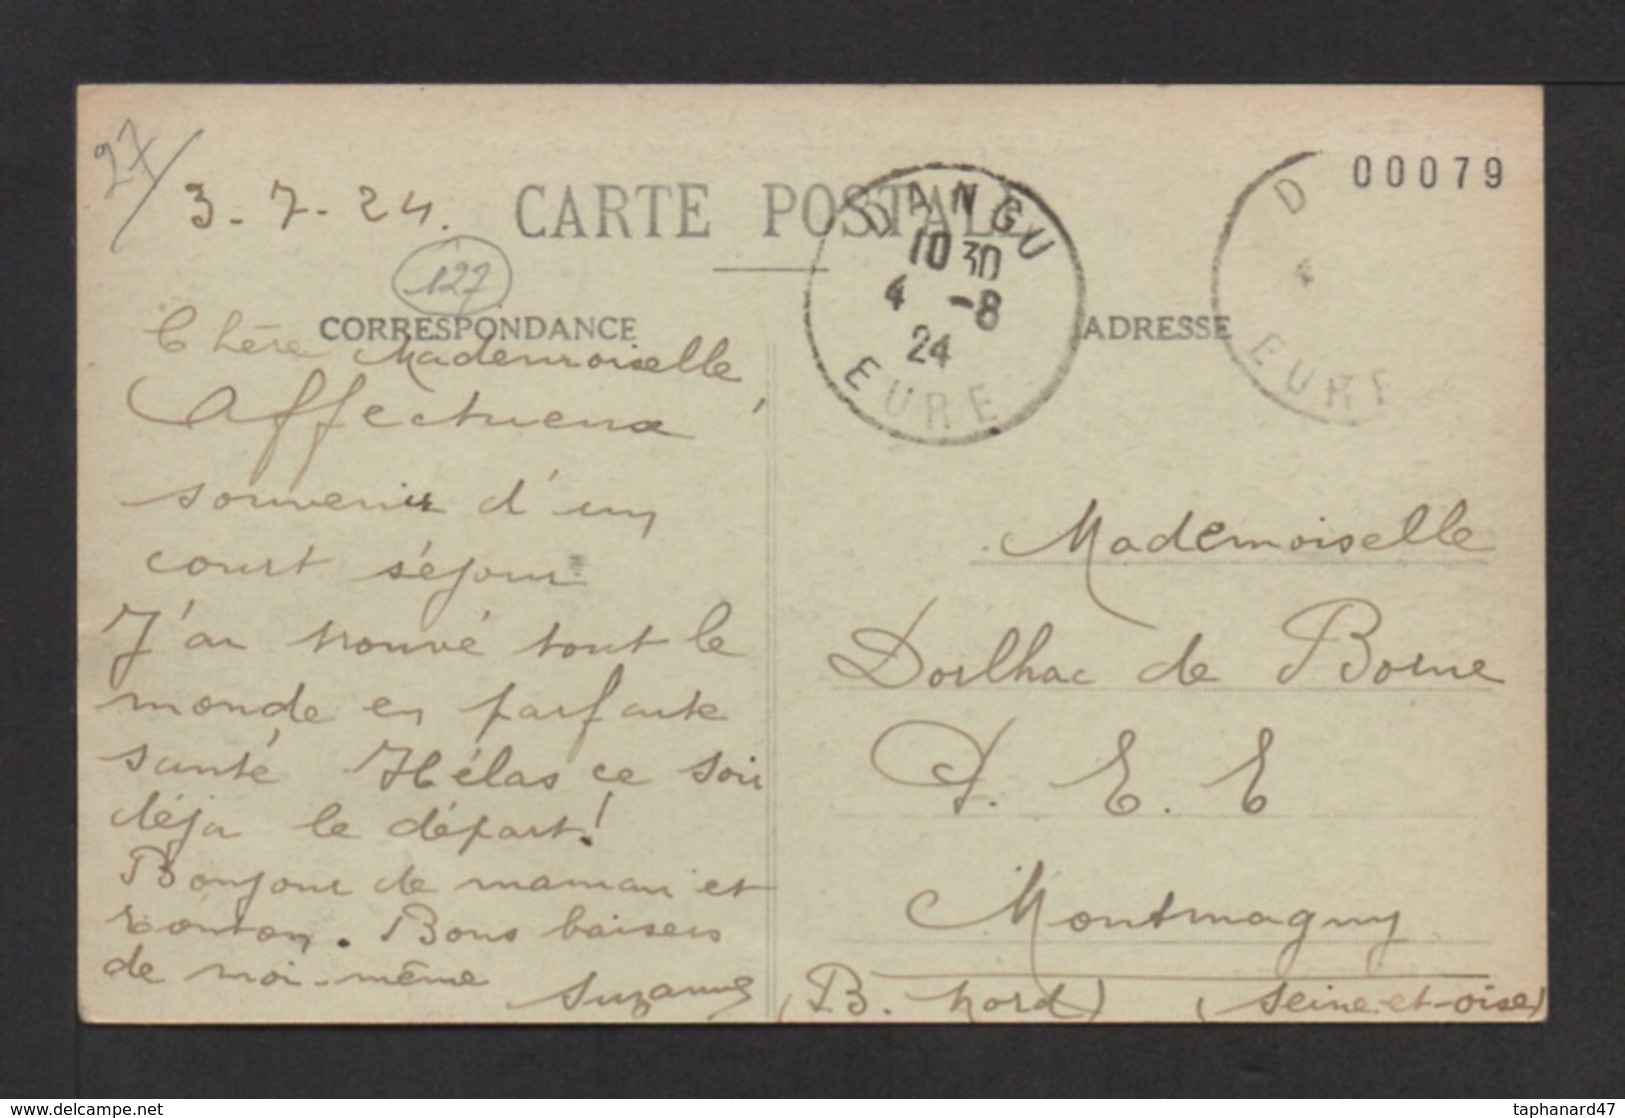 27/
3-7-24.
CARTE POSTALE
127
CORRESPONDANCE
Chère Mademoiselle,
Affectueux
souvenir d'un
court séjour
J'ai trouvé tout le
monde en parfaite
santé Hélas ce soir
déjà le départ!
Bonjour de maman et
tonton. Bons baisers
de moi-même
Suzanne
DANGU
10 30
4 -8
24
EURE
ADRESSE
D
4
EURE
00079
Mademoiselle
Dorlhac de Borne
E. E
Montmagny
(B. nord) (Seine-et-oise)
www.delcampe.net
taphanard47